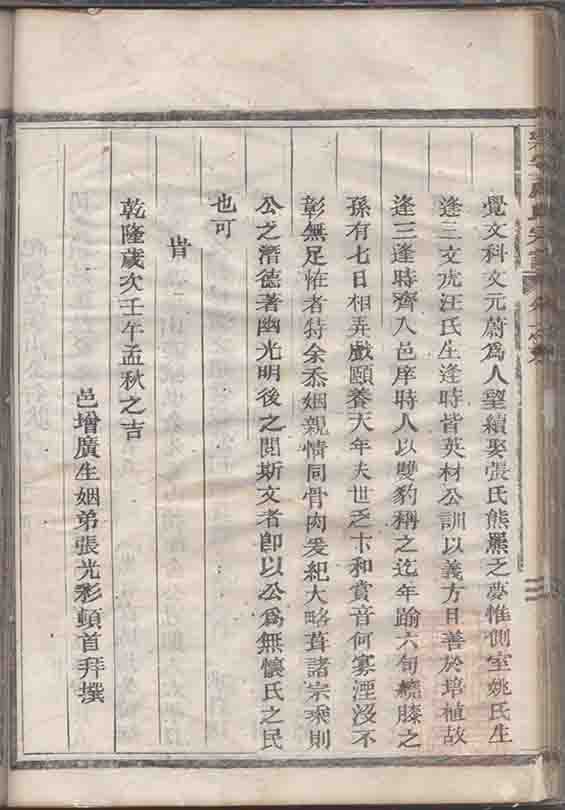 覺文科文元蔚爲人望續娶張氏熊羆之夢惟側室姚氏生
逢三文虎汪氏生逢時皆英材公訓以義方日善於培植故
逢三逢時濟入邑庠時人以雙豹稱之迄年踰六旬繞膝之
孫有七日相弄戲頤養天年夫世乏卞和賞音何寡湮沒不
彰無足怪者特余忝姻親情同骨肉爰紀大略葺諸宗乘則
公之潛德著幽光明後之閲斯文者卽以公爲無懷氏之民
也可
旹
乾隆歲次壬午孟秋之吉
邑增廣生姻弟張光彩頓首拜撰